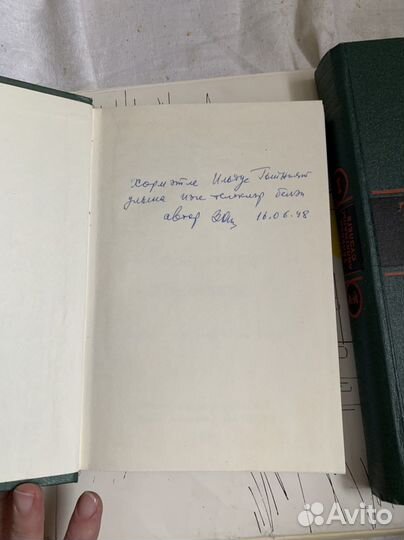 хөрмәтле Илдус Гыйният
улына изге теләкләр белән
автор 16.06.98
Avito